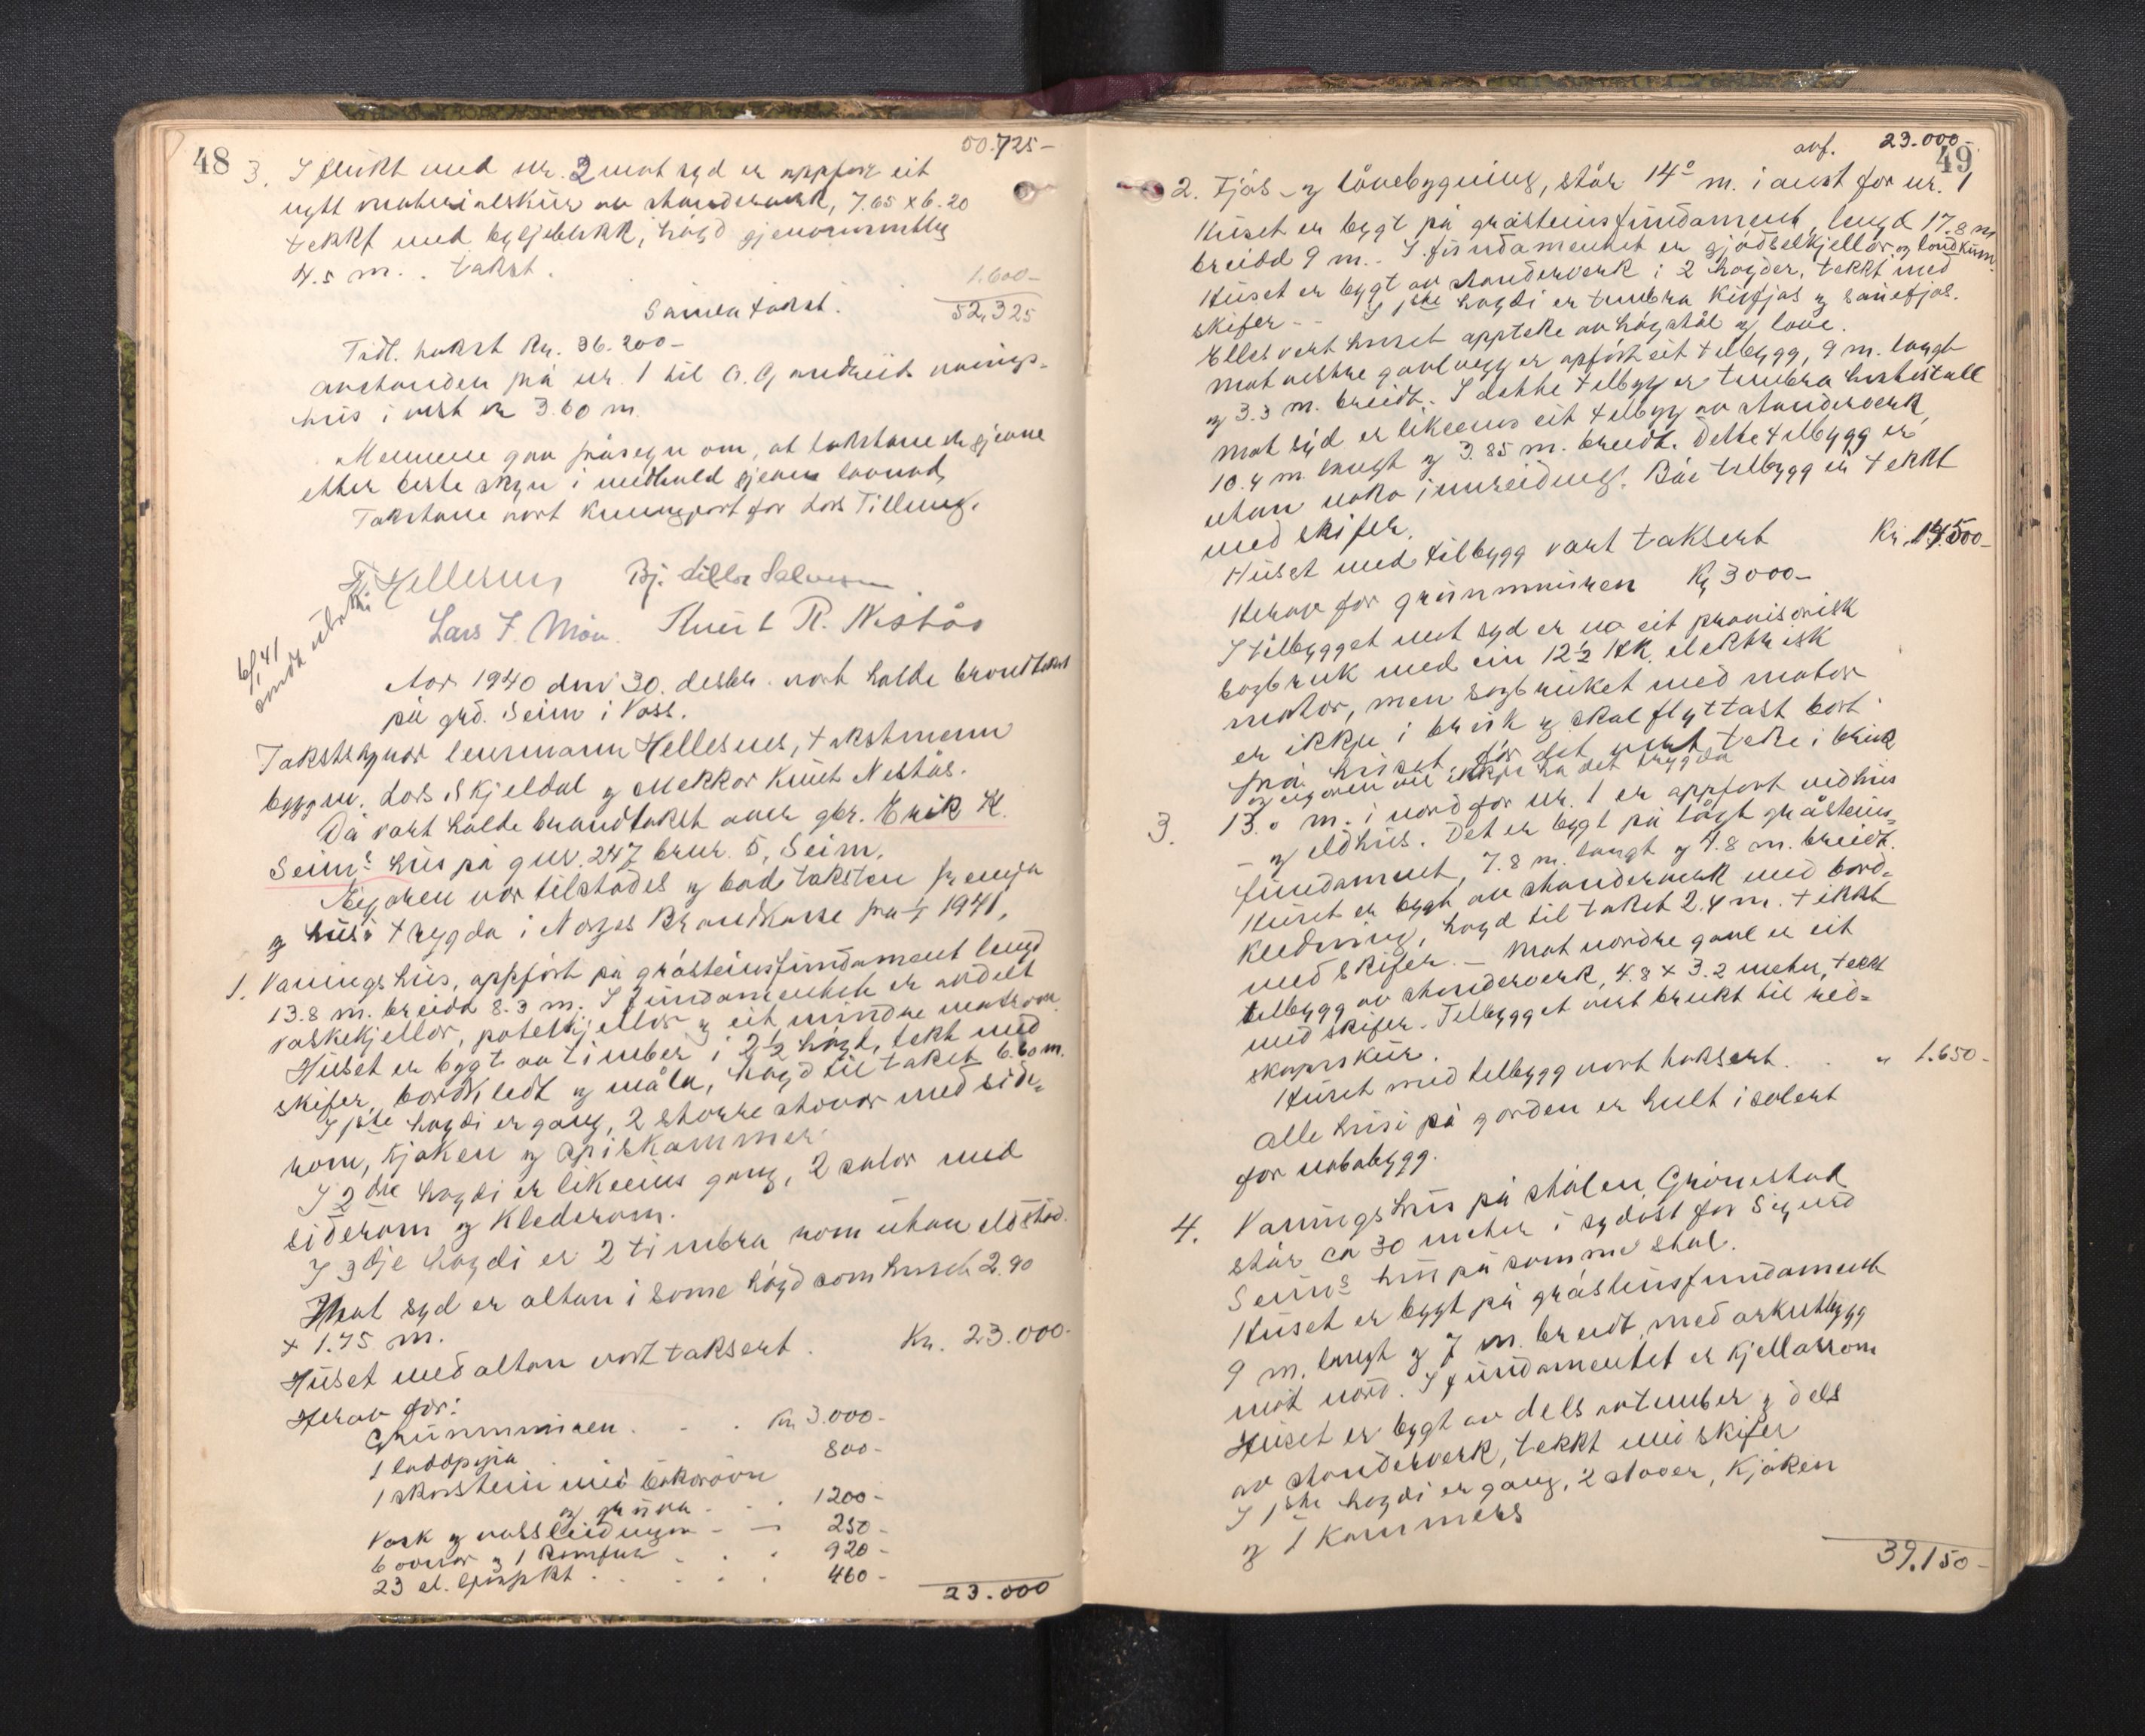 48
50.725-
3. I flukt med nr. 2 mot syd er oppført eit
nytt materialskur av standerverk, 7.65 x 6.20
tekkt med bylgjeblikk, høgd gjenomsnittleg
4.5 m. . takst. 1.600-
Samla takst. 52,325
Tidl. takst Kr. 36.200-
avstanden frå nr. 1 til O. G. vaanings-
hus i vest er 3.60 m.
Mennene gav fråsegn om, at takstane er gjevne
etter beste skyn i medhald gjevne lovnad,
Takstane vart kunngjort for Lars Tillung.
Hellesnes Bj. Lilles Salvesen
Lars F. Møn. Knut R. Nestås
6/1 41
sendt utskr.
Aar 1940 den 30. desbr. vart halde brandtakst
på grd. Seim i Voss.
Takstskynar lensmann Hellesnes, takstmenn
byggm. Lars Skjeldal og snekkar Knut Nestås.
Då vart halde brandtakst over gbr. Erik K.
Seims hus på gnr. 247 brnr. 5, Seim.
Eigaren var tilstades og bad taksten fremja
og husi trygda i Noregs Brandkasse frå 1/1 1941.
1. Vaningshus, oppført på gråsteinsfundament lengd
13.8 m. breidd 8.3 m. I fundamentet er avdelt
vaskekjellar, potetkjellar og eit mindre matrom
Huset er bygt av timber i 2½ høgd, tekt med
skifer, bordkledt og måla, høgd til taket 6.60 m.
I 1ste høgdi er gang, 2 større stovor med side-
rom, kjøken og spiskammer
I 2dre høgdi er likeeins gang, 2 salar med
siderom og klederom.
I 3dje høgdi er 2 timbra rom utan eldstad.
Mot syd er altan i same høgd som huset 2.90
x 1.75 m.
Huset med altan vart taksert . Kr. 23.000-
Herav for:
Grunnmuren . - . Kr 3.000-
1 laddpipa 800-
1 skorstein med bakarovn
og gruva - . . 1200-
Vask og vassleidningen - - 250-
6 ovnar og 1 komfur - . . 920-
23 el. ljospkt . . . . . 460-
23.000
49
ovf. 23.000-
2. Fjøs- og løvebygning, står 14° m. i aust for nr. 1
Huset er bygt på gråsteinsfundament, lengd 17.8 m
breidd 9 m.. I fundamentet er gjødselkjellar og landkum.
Huset er bygt av standerverk i 2 høgder, tekkt med
skifer - - I 1ste høgdi er timbra kufjøs og sauefjøs.
Elles vert huset oppteke av høystål og løve.
Mot vestre gavlvegg er opført eit tilbygg, 9 m. langt
og 3.3 m. breidt. I dette tilbygg er timbra hestestall
Mot syd er likeeins eit tilbygg av standerverk,
10.4 m. langt og 3.85 m. breidt. Dette tilbygg er
utan noko innreiding. Båe tilbygg er tekkt
med skifer.
Huset med tilbygg vart taksert Kr. 14.500-
Herav for grunnmuren Kr 3000-
I tilbygget mot syd er no eit provisorisk
sagbruk med ein 12½ HK. elektrisk
motor, men sagbruket med motor
er ikkje i bruk og skal flyttast bort
frå huset, før det vert teke i bruk
og eigaren vil ikkje ha det trygda
3. 13.0 m. i nord for nr. 1 er oppført vedhus
- og eldhus. Det er bygt på lågt gråsteins-
fundament, 7.8 m. langt og 4.8 m. breidt.
Huset er bygt av standerverk med bord-
kledning, høgd til taket 2.4 m. tekkt
med skifer. - Mot nordre gavl er eit
tilbygg av standerverk, 4.8 x 3.2 meter, tekkt
med skifer. Tilbygget vert brukt til reid-
skapsskur.
Huset med tilbygg vart taksert . . " 1.650-
Alle husi på garden er heilt isolert
for nabobygg.
4. Vaningshus på stølen Grønestad
står ca 30 meter i sydost for Sigurd
Seims hus på samme støl.
Huset er bygt på gråsteinsfundament
9 m. langt og 7 m. breidt, med arkutbygg
mot nord. I fundamentet er kjellarrom
Huset er bygt av dels av timber og dels
av standerverk, tekkt med skifer
I 1ste høgdi er gang, 2 stover, kjøken
og 1 kammers
39.150-